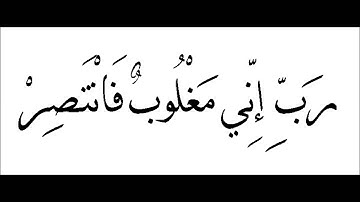 رَبِّ إِنِّي مَغْلُوبٌ فَانْتَصِرْ